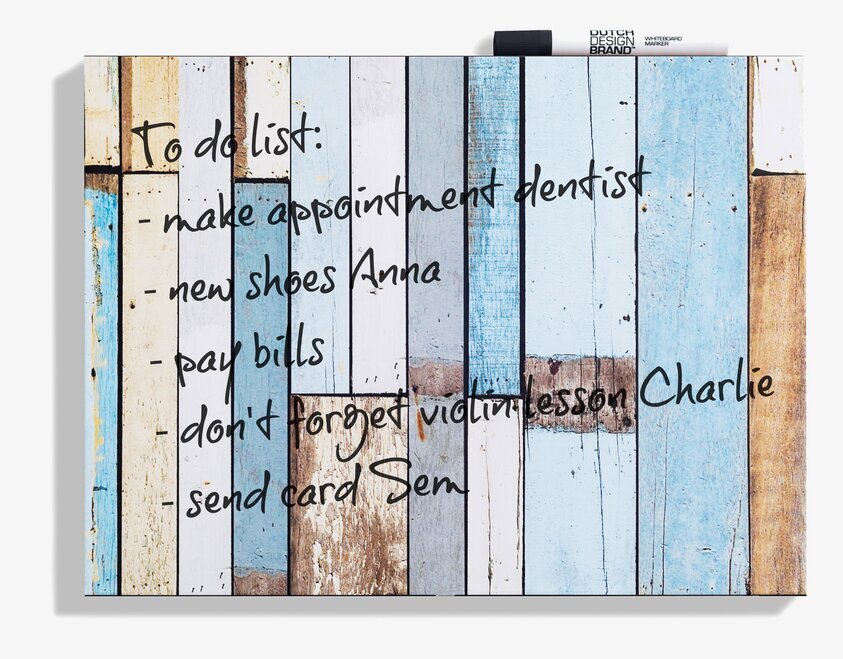 DUTCH
DESIGN
BRAND™
WHITEBOARD
MARKER
To do list:
- make appointment dentist
- new shoes Anna
- pay bills
- don't forget violin lesson Charlie
- send card Sem